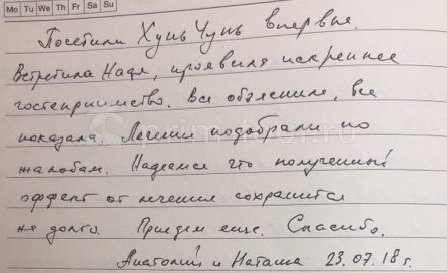 Mo Tu We Th Fr Sa Su
Посетили Хунь Чунь впервые.
Встретила Надя, проявила искреннее
гостеприимство. Все объяснила, все
показала. Лечение подобрали по
жалобам. Надеемся что полученный
эффект от лечения сохранится
не долго. Приедем еще. Спасибо.
Анатолий и Наташа 23.07.18 г.